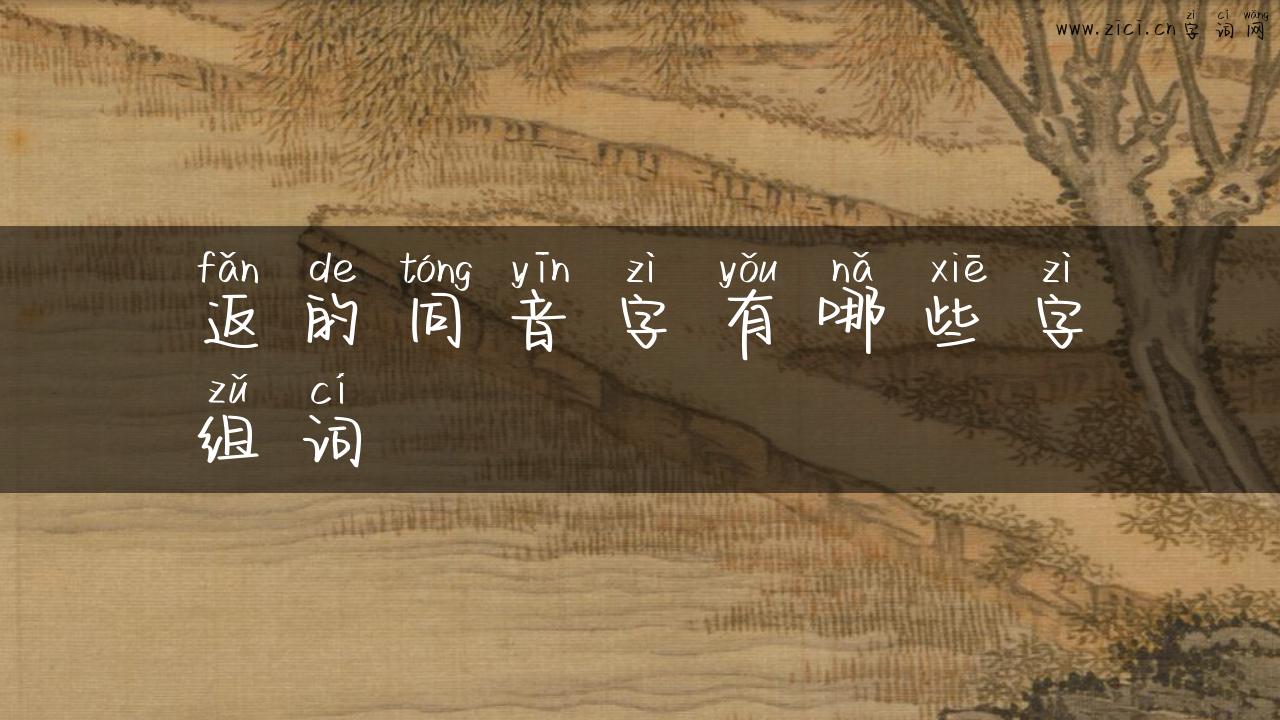 zì cí wǎng
www.zici.cn字词网
fǎn de tóng yīn zì yǒu nǎ xiē zì
返的同音字有哪些字
zǔ cí
组词